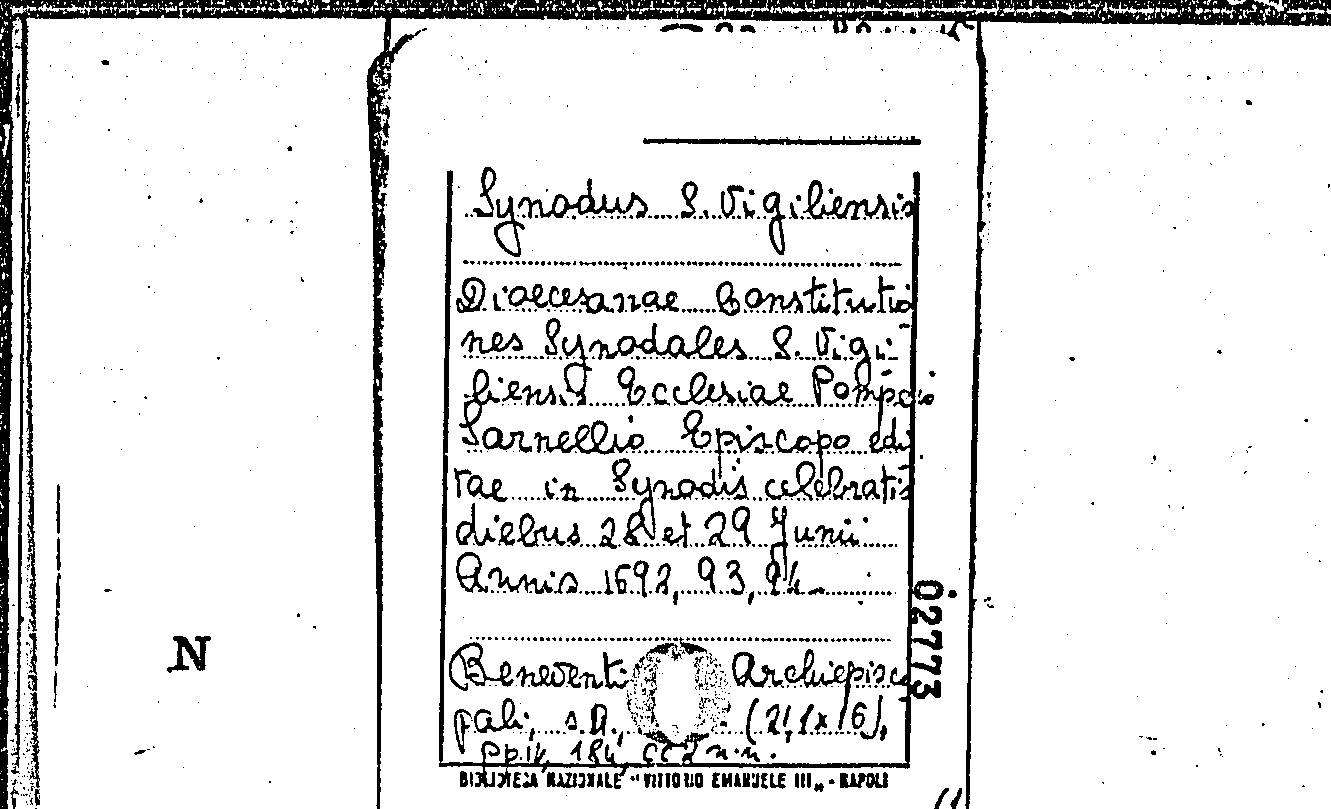 Synodus S. Vigiliensis
Dioecesanae Constitutio
nes Synodales S. Vigi-
liensis Ecclesiae Pompeio
Sarnellio Episcopo edi
tae in Synodis celebratis
diebus 28 et 29 Junii
Annis 1692, 93, 94
Beneventi Archiepisco
pali, s.a., (21,1x16),
pp. IV, 184, cc 2 n.n.
BIBLIOTECA NAZIONALE "VITTORIO EMANUELE III„ - NAPOLI
02773
N